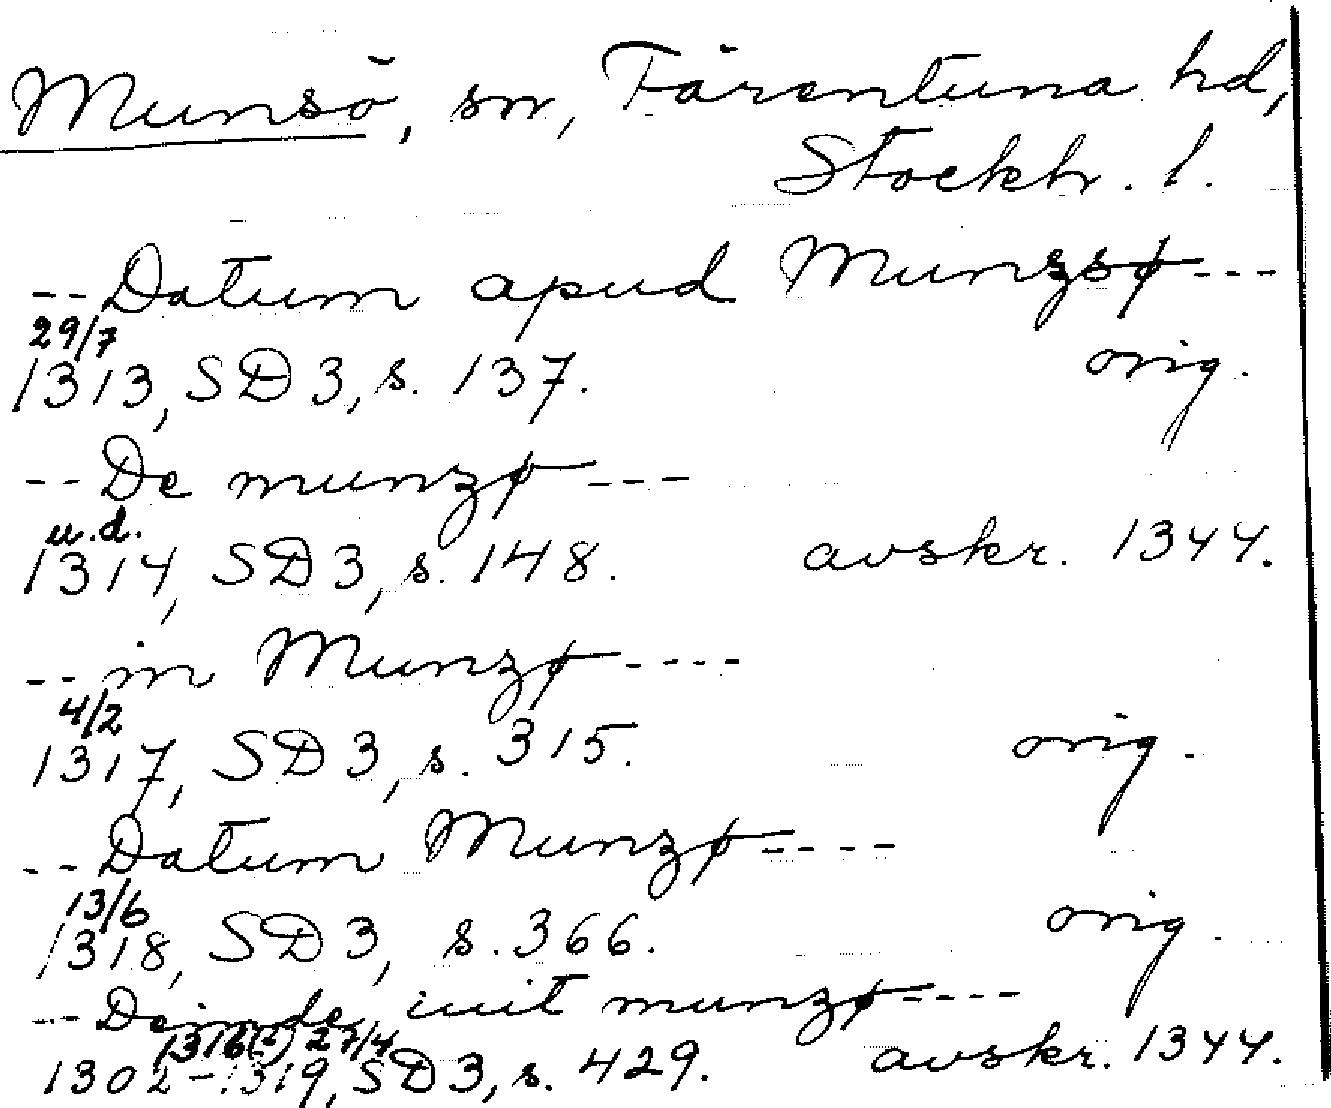 Munsö, sn, Färentuna hd,
Stockh. l.
-- Datum apud Munzsø ---
29/7
1313, SD 3, s. 137. orig.
-- De munzø ---
u.d.
1314, SD 3, s. 148. avskr. 1344.
-- in Munzø ----
4/2
1317, SD 3, s. 315. orig.
-- Datum Munzø ----
13/6
1318, SD 3, s. 366. orig.
-- Deinde iuit munzø ----
1316(?) 27/4
1302-1319, SD 3, s. 429. avskr. 1344.